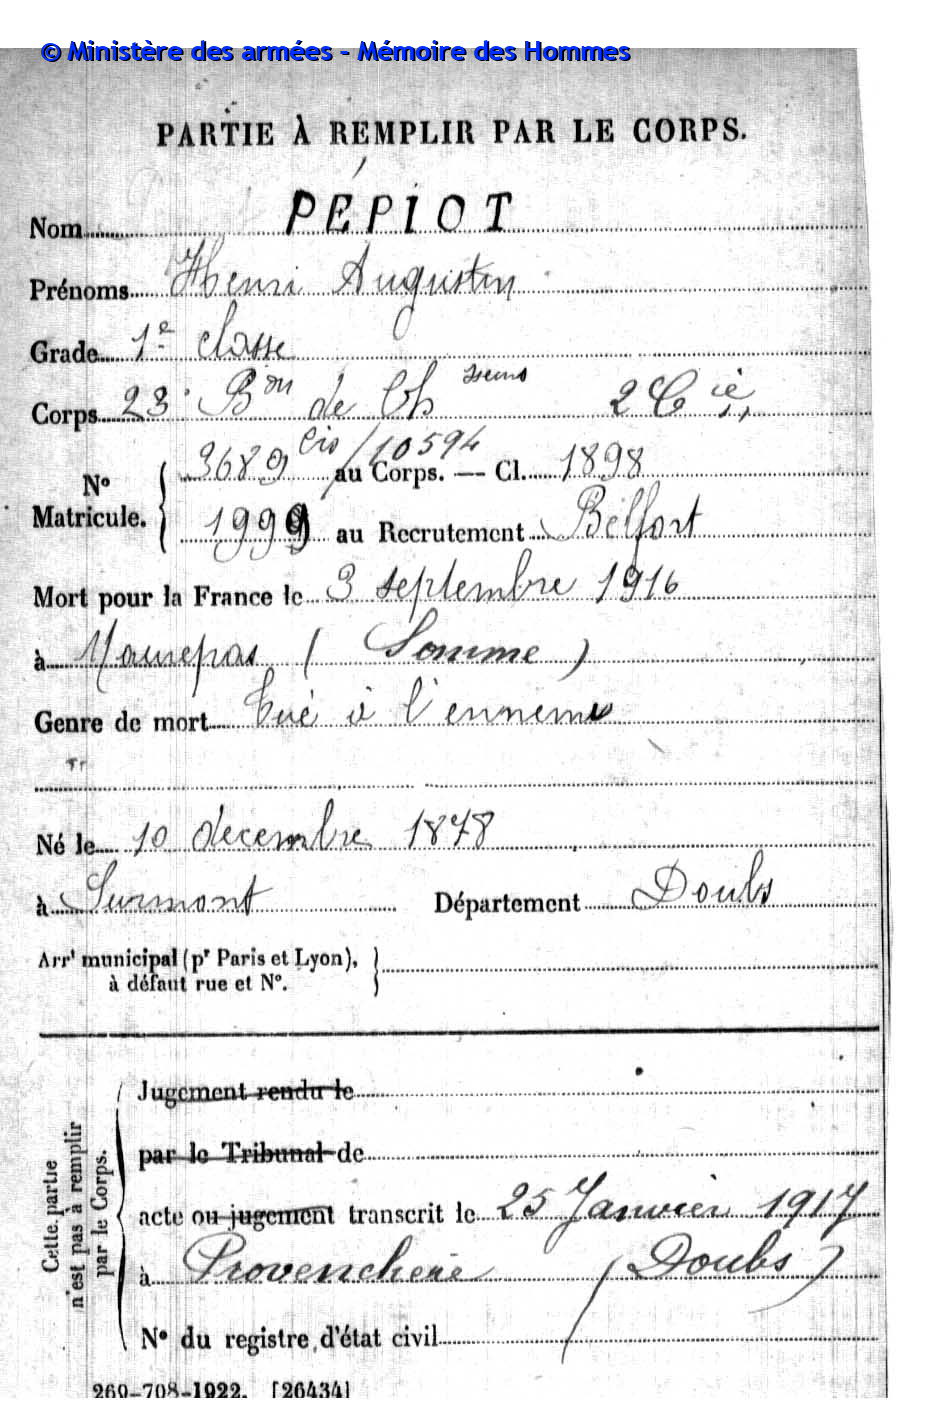 © Ministère des armées - Mémoire des Hommes
PARTIE À REMPLIR PAR LE CORPS.
Nom PÉPIOT
Prénoms Henri Augustin
Grade 1e classe
Corps 23 Bon de Ch sseurs 2 Cie
No Matricule. 3689 Cis/10594 au Corps. — Cl. 1898
1999 au Recrutement Belfort
Mort pour la France le 3 septembre 1916
à Maurepas (Somme)
Genre de mort tué à l'ennemi
Né le 10 decembre 1878
à Surmont Département Doubs
Arrt municipal (pr Paris et Lyon),
à défaut rue et No.
Cette partie n'est pas à remplir par le Corps.
Jugement rendu le
par le Tribunal de
acte ou jugement transcrit le 25 Janvier 1917
à Provenchère (Doubs)
No du registre d'état civil
269-708-1922. [26434]